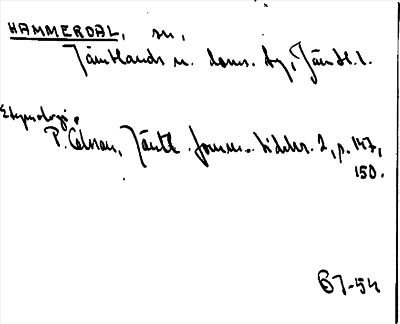 HAMMERDAL, sn,
Jämtlands n. doms. bg, Jämtl. l.
Etymologi:
P. Olsson, Jämtl. fornm. tidskr. 2, p. 147,
150.
67-54